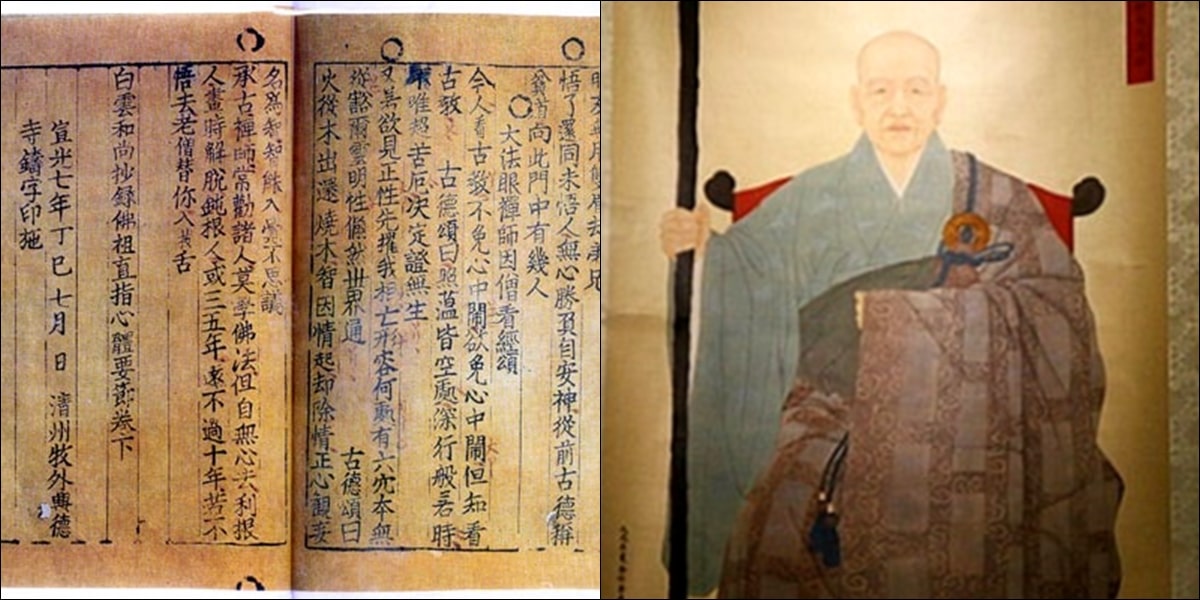 悟了還同未悟人無心勝負自安神從前古德稱
向此門中有幾人
大法眼禪師因僧看經頌
今人看古教不免心中鬧欲免心中鬧但知看
古教 古德頌曰照蘊皆空處深行般若時
唯超苦厄決定證無生
又若欲見正性先摧我相亡形容何處有六穴本無
從豁爾雲明性儼然世界通 古德頌曰
火從木出還燒木智因情起却除情正心觀妄
名爲智智能入 不思議
承古禪師常勸諸人莫學佛法但自無心去利根
人晝時解脫鈍根人或三五年遠不過十年若不
悟去老僧替你入 舌
白雲和尚抄錄佛祖直指心體要節卷下
宣光七年丁巳七月 日 清州牧外興德
寺鑄字印施